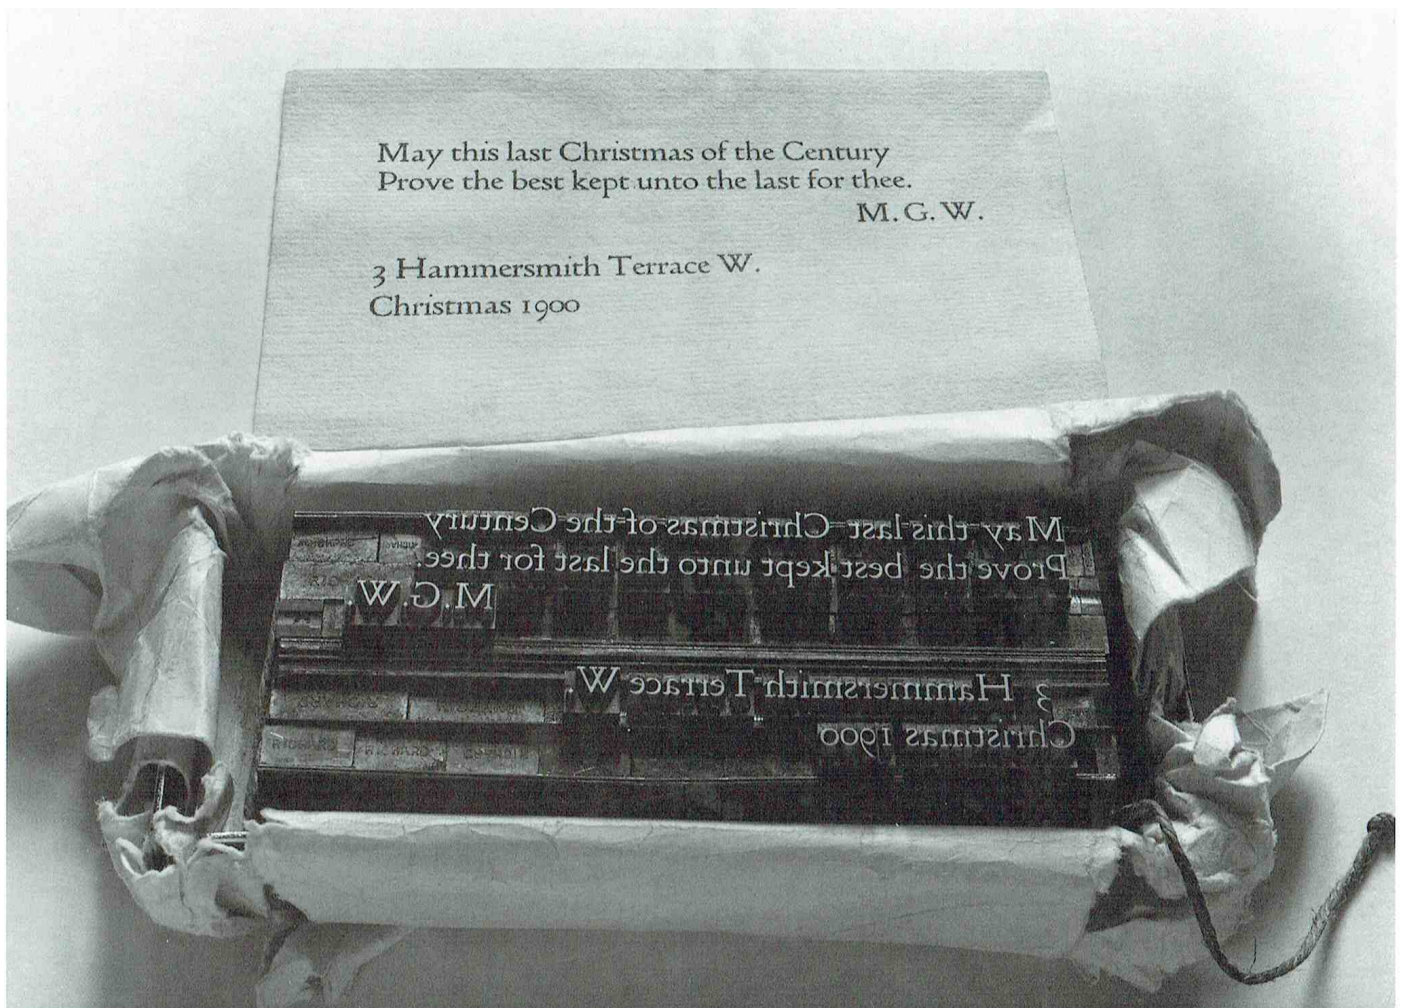 May this last Christmas of the Century
Prove the best kept unto the last for thee.
M. G. W.
3 Hammersmith Terrace W.
Christmas 1900
May this last Christmas of the Century
Prove the best kept unto the last for thee.
M.G.W.
3 Hammersmith Terrace W.
Christmas 1900